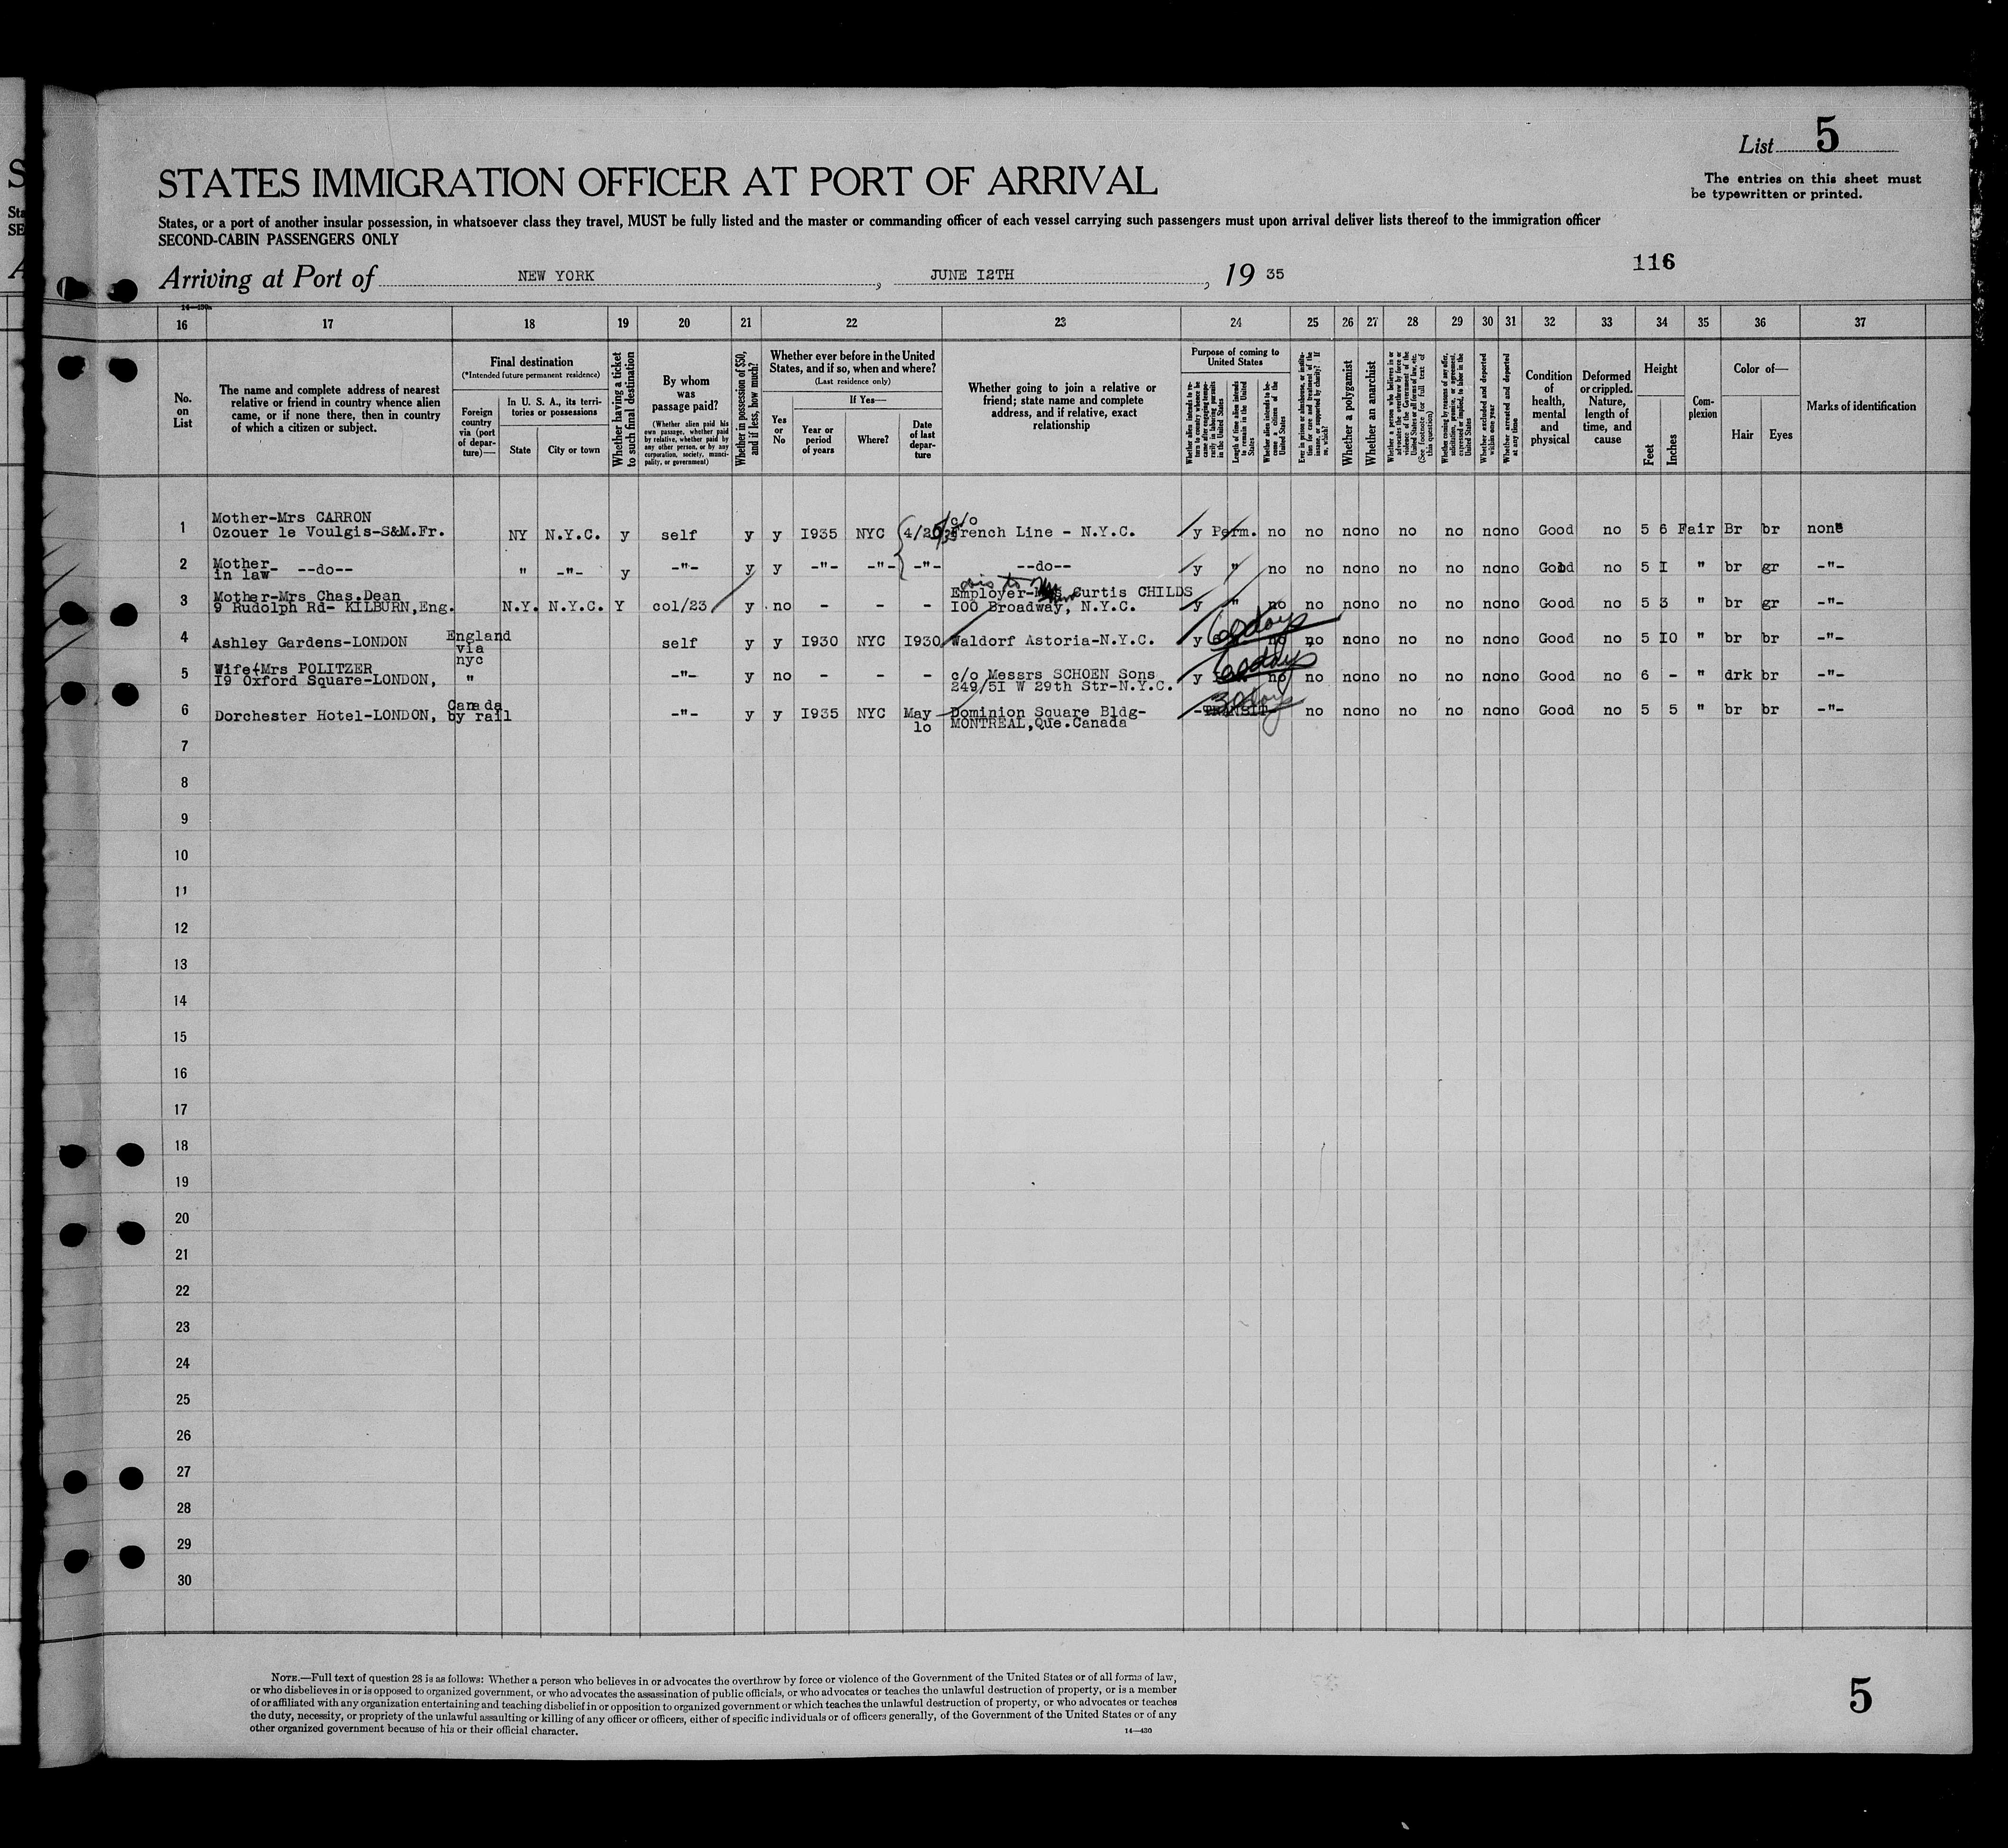 List 5
STATES IMMIGRATION OFFICER AT PORT OF ARRIVAL
The entries on this sheet must
be typewritten or printed.
States, or a port of another insular possession, in whatsoever class they travel, MUST be fully listed and the master or commanding officer of each vessel carrying such passengers must upon arrival deliver lists thereof to the immigration officer
SECOND-CABIN PASSENGERS ONLY
116
Arriving at Port of NEW YORK, JUNE I2TH, 19 35
16 17 18 19 20 21 22 23 24 25 26 27 28 29 30 31 32 33 34 35 36 37
No. on List
The name and complete address of nearest relative or friend in country whence alien came, or if none there, then in country of which a citizen or subject.
Final destination
(*Intended future permanent residence)
Foreign country via (port of departure)—
In U. S. A., its territories or possessions
State
City or town
Whether having a ticket to such final destination
By whom was passage paid?
(Whether alien paid his own passage, whether paid by relative, whether paid by any other person, or by any corporation, society, municipality, or government)
Whether in possession of $50, and if less, how much?
Whether ever before in the United States, and if so, when and where?
(Last residence only)
Yes or No
If Yes—
Year or period of years
Where?
Date of last departure
Whether going to join a relative or friend; state name and complete address, and if relative, exact relationship
Purpose of coming to United States
Length of time alien intends to remain in the United States
Whether alien intends to become a citizen of the United States
Whether a polygamist
Whether an anarchist
(See footnote for full text of this question)
Whether excluded and deported within one year
Whether arrested and deported at any time
Condition of health, mental and physical
Deformed or crippled. Nature, length of time, and cause
Height
Feet
Inches
Complexion
Color of—
Hair
Eyes
Marks of identification
1 Mother-Mrs CARRON
Ozouer le Voulgis-S&M.Fr. NY N.Y.C. y self y y I935 NYC c/o French Line - N.Y.C. y Perm. no no no no no no no no Good no 5 6 Fair Br br none
2 Mother in law- --do-- " -"- y -"- y y -"- -"- -"- --do-- y " no no no no no no no no Good no 5 I " br gr -"-
3 Mother-Mrs Chas.Dean
9 Rudolph Rd- KILBURN,Eng. N.Y. N.Y.C. Y col/23 y no - - - Employer- Curtis CHILDS
I00 Broadway, N.Y.C. y " no no no no no no no no Good no 5 3 " br gr -"-
4 Ashley Gardens-LONDON England via nyc self y y I930 NYC I930 Waldorf Astoria-N.Y.C. y 60 days no no no no no no no no Good no 5 IO " br br -"-
5 Wife-Mrs POLITZER
I9 Oxford Square-LONDON, " -"- y no - - - c/o Messrs SCHOEN Sons
249/5I W 29th Str-N.Y.C. y 60 days no no no no no no no no Good no 6 - " drk br -"-
6 Dorchester Hotel-LONDON, Canada by rail -"- y y I935 NYC May 1o Dominion Square Bldg-
MONTREAL,Que.Canada -TRANSIT- 30 days no no no no no no no Good no 5 5 " br br -"-
7
8
9
10
11
12
13
14
15
16
17
18
19
20
21
22
23
24
25
26
27
28
29
30
NOTE.—Full text of question 28 is as follows: Whether a person who believes in or advocates the overthrow by force or violence of the Government of the United States or of all forms of law,
or who disbelieves in or is opposed to organized government, or who advocates the assassination of public officials, or who advocates or teaches the unlawful destruction of property, or is a member
of or affiliated with any organization entertaining and teaching disbelief in or opposition to organized government or which teaches the unlawful destruction of property, or who advocates or teaches
the duty, necessity, or propriety of the unlawful assaulting or killing of any officer or officers, either of specific individuals or of officers generally, of the Government of the United States or of any
other organized government because of his or their official character.
14—430
5